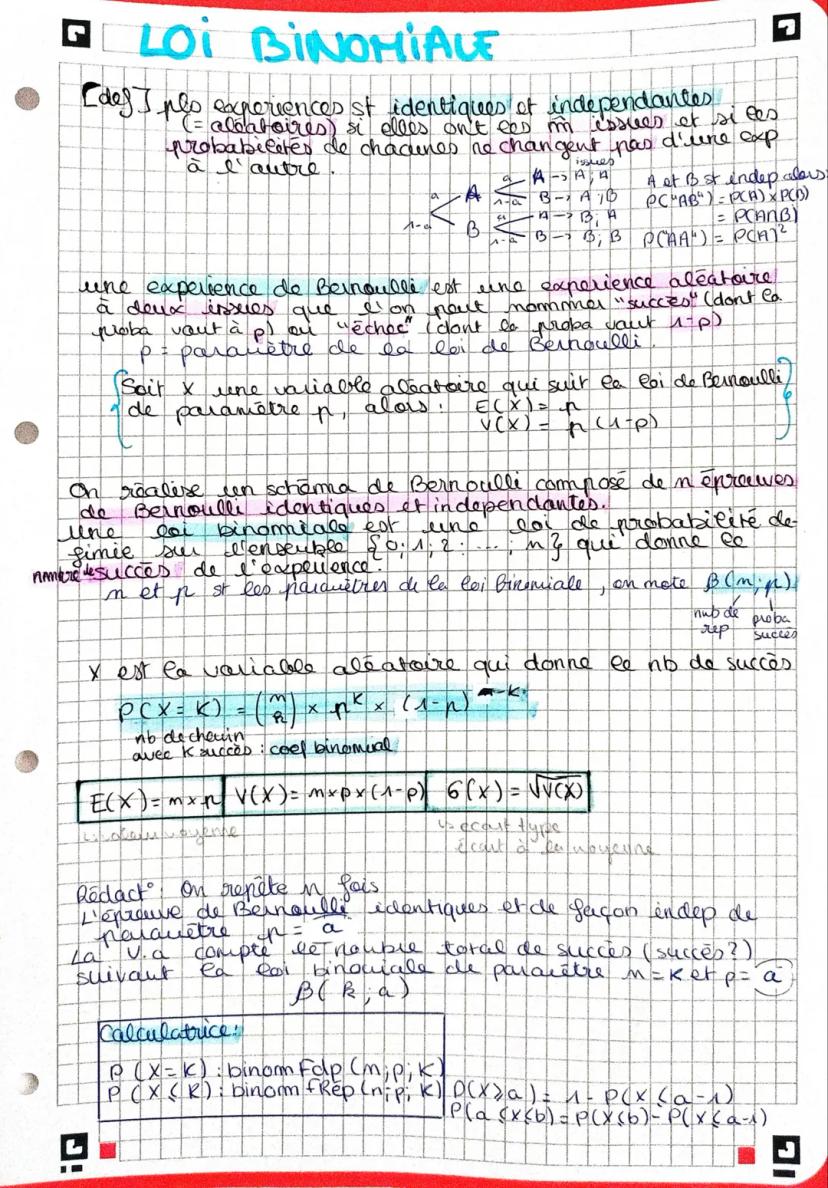 LOI BINOMIALE
[def] pls experiences st identiques et independantes
(= aléatoires) si elles ont les m̂ issues et si les
probabilités de chacunes ne changent pas d'une exp
à l'autre.
issues
a A a A → A ; A
1-a B → A ; B
1-a B a A → B ; A
1-a B → B ; B
A et B st indep alors:
P("AB") = P(A) × P(B)
= P(A∩B)
P("AA") = P(A)²
une experience de Bernoulli est une experience aléatoire
à deux issues que l'on peut nommer "succès" (dont la
proba vaut à p) ou "échec" (dont la proba vaut 1-p)
p = paramètre de la loi de Bernoulli.
Soit X une variable aléatoire qui suit la loi de Bernoulli
de paramètre p, alors : E(X) = p
V(X) = p (1-p)
On réalise un schéma de Bernoulli composé de n épreuves
de Bernoulli identiques et independantes.
Une loi binomiale est une loi de probabilité dé-
finie sur l'ensemble {0; 1; 2; ...; n} qui donne le
nombre de succès de l'experience.
n et p st les paramètres de la loi Binomiale, on note β(n; p)
nub de rep
proba succès
X est la variable aléatoire qui donne le nb de succès
P(X = K) = (n k) × p^K × (1-p)^n-K
nb de chemin
avec K succès : coef binomial
E(X) = n × p V(X) = n×p×(1-p) σ(X) = √V(X)
↳ écart type
écart à la moyenne
Rédact° : On repète n fois
L'épreuve de Bernoulli identiques et de façon indep de
paramètre p = a
La v.a compte le nombre total de succès (succès?)
suivant la loi binomiale de paramètre n = K et p = a
β( k ; a )
Calculatrice:
P (X = K) : binom Fdp (n; p; K)
P (X ≤ K) : binom fRép (n; p; K)
P(X ⩾ a) = 1 - P(X ≤ a-1)
P(a ≤ X ≤ b) = P(X ≤ b) - P(X ≤ a-1)